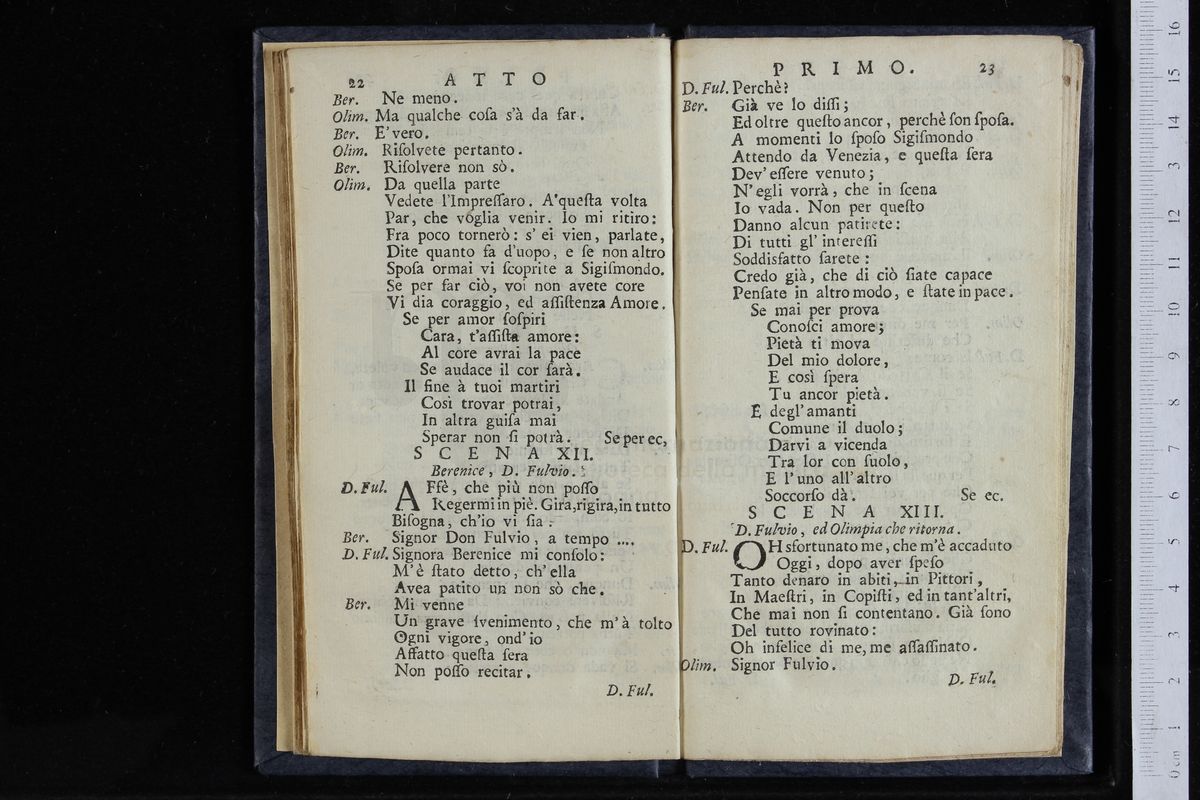 22 ATTO
Ber. Ne meno.
Olim. Ma qualche coſa s'à da far.
Ber. E' vero.
Olim. Riſolvete pertanto.
Ber. Riſolvere non sò.
Olim. Da quella parte
Vedete l'Impreſſaro. A'queſta volta
Par, che voglia venir. Io mi ritiro:
Fra poco tornerò: s' ei vien, parlate,
Dite quanto fa d'uopo, e ſe non altro
Spoſa ormai vi ſcoprite a Sigiſmondo.
Se per far ciò, voi non avete core
Vi dia coraggio, ed aſſiſtenza Amore.
Se per amor ſoſpiri
Cara, t'aſſiſta amore:
Al core avrai la pace
Se audace il cor ſarà.
Il fine à tuoi martiri
Così trovar potrai,
In altra guiſa mai
Sperar non ſi potrà. Se per ec,
SCENA XII.
Berenice, D. Fulvio.
D. Ful. AFfè, che più non poſſo
Regermi in piè. Gira, rigira, in tutto
Biſogna, ch'io vi ſia:
Ber. Signor Don Fulvio, a tempo ....
D. Ful. Signora Berenice mi conſolo:
M'è ſtato detto, ch' ella
Avea patito un non sò che.
Ber. Mi venne
Un grave ſvenimento, che m'à tolto
Ogni vigore, ond'io
Affatto queſta ſera
Non poſſo recitar.
D. Ful.
PRIMO. 23
D. Ful. Perchè?
Ber. Già ve lo diſſi;
Ed oltre queſto ancor, perchè ſon ſpoſa.
A momenti lo ſpoſo Sigiſmondo
Attendo da Venezia, e queſta ſera
Dev' eſſere venuto;
N' egli vorrà, che in ſcena
Io vada. Non per queſto
Danno alcun patirete:
Di tutti gl' intereſſi
Soddisfatto ſarete:
Credo già, che di ciò ſiate capace
Penſate in altro modo, e ſtate in pace.
Se mai per prova
Conoſci amore;
Pietà ti mova
Del mio dolore,
E così ſpera
Tu ancor pietà.
E degl' amanti
Comune il duolo;
Darvi a vicenda
Tra lor con ſuolo,
E l'uno all'altro
Soccorſo dà. Se ec.
SCENA XIII.
D. Fulvio, ed Olimpia che ritorna.
D. Ful. OH sfortunato me, che m'è accaduto
Oggi, dopo aver ſpeſo
Tanto denaro in abiti, in Pittori,
In Maeſtri, in Copiſti, ed in tant'altri,
Che mai non ſi contentano. Già ſono
Del tutto rovinato:
Oh infelice di me, me aſſaſſinato.
Olim. Signor Fulvio.
D. Ful.
0 cm 1 2 3 4 5 6 7 8 9 10 11 12 3 14 15 16